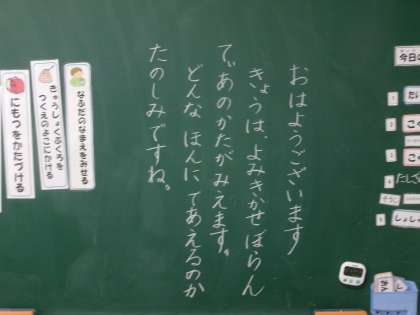 今日
おはようございます
きょうは、よみきかせぼらん
てぃあのかたがみえます。
どんなほんにであえるのか
たのしみですね。
なふだのなまえをみせる
きゅうしょくぶくろを
つくえのよこにかける
にもつをかたづける